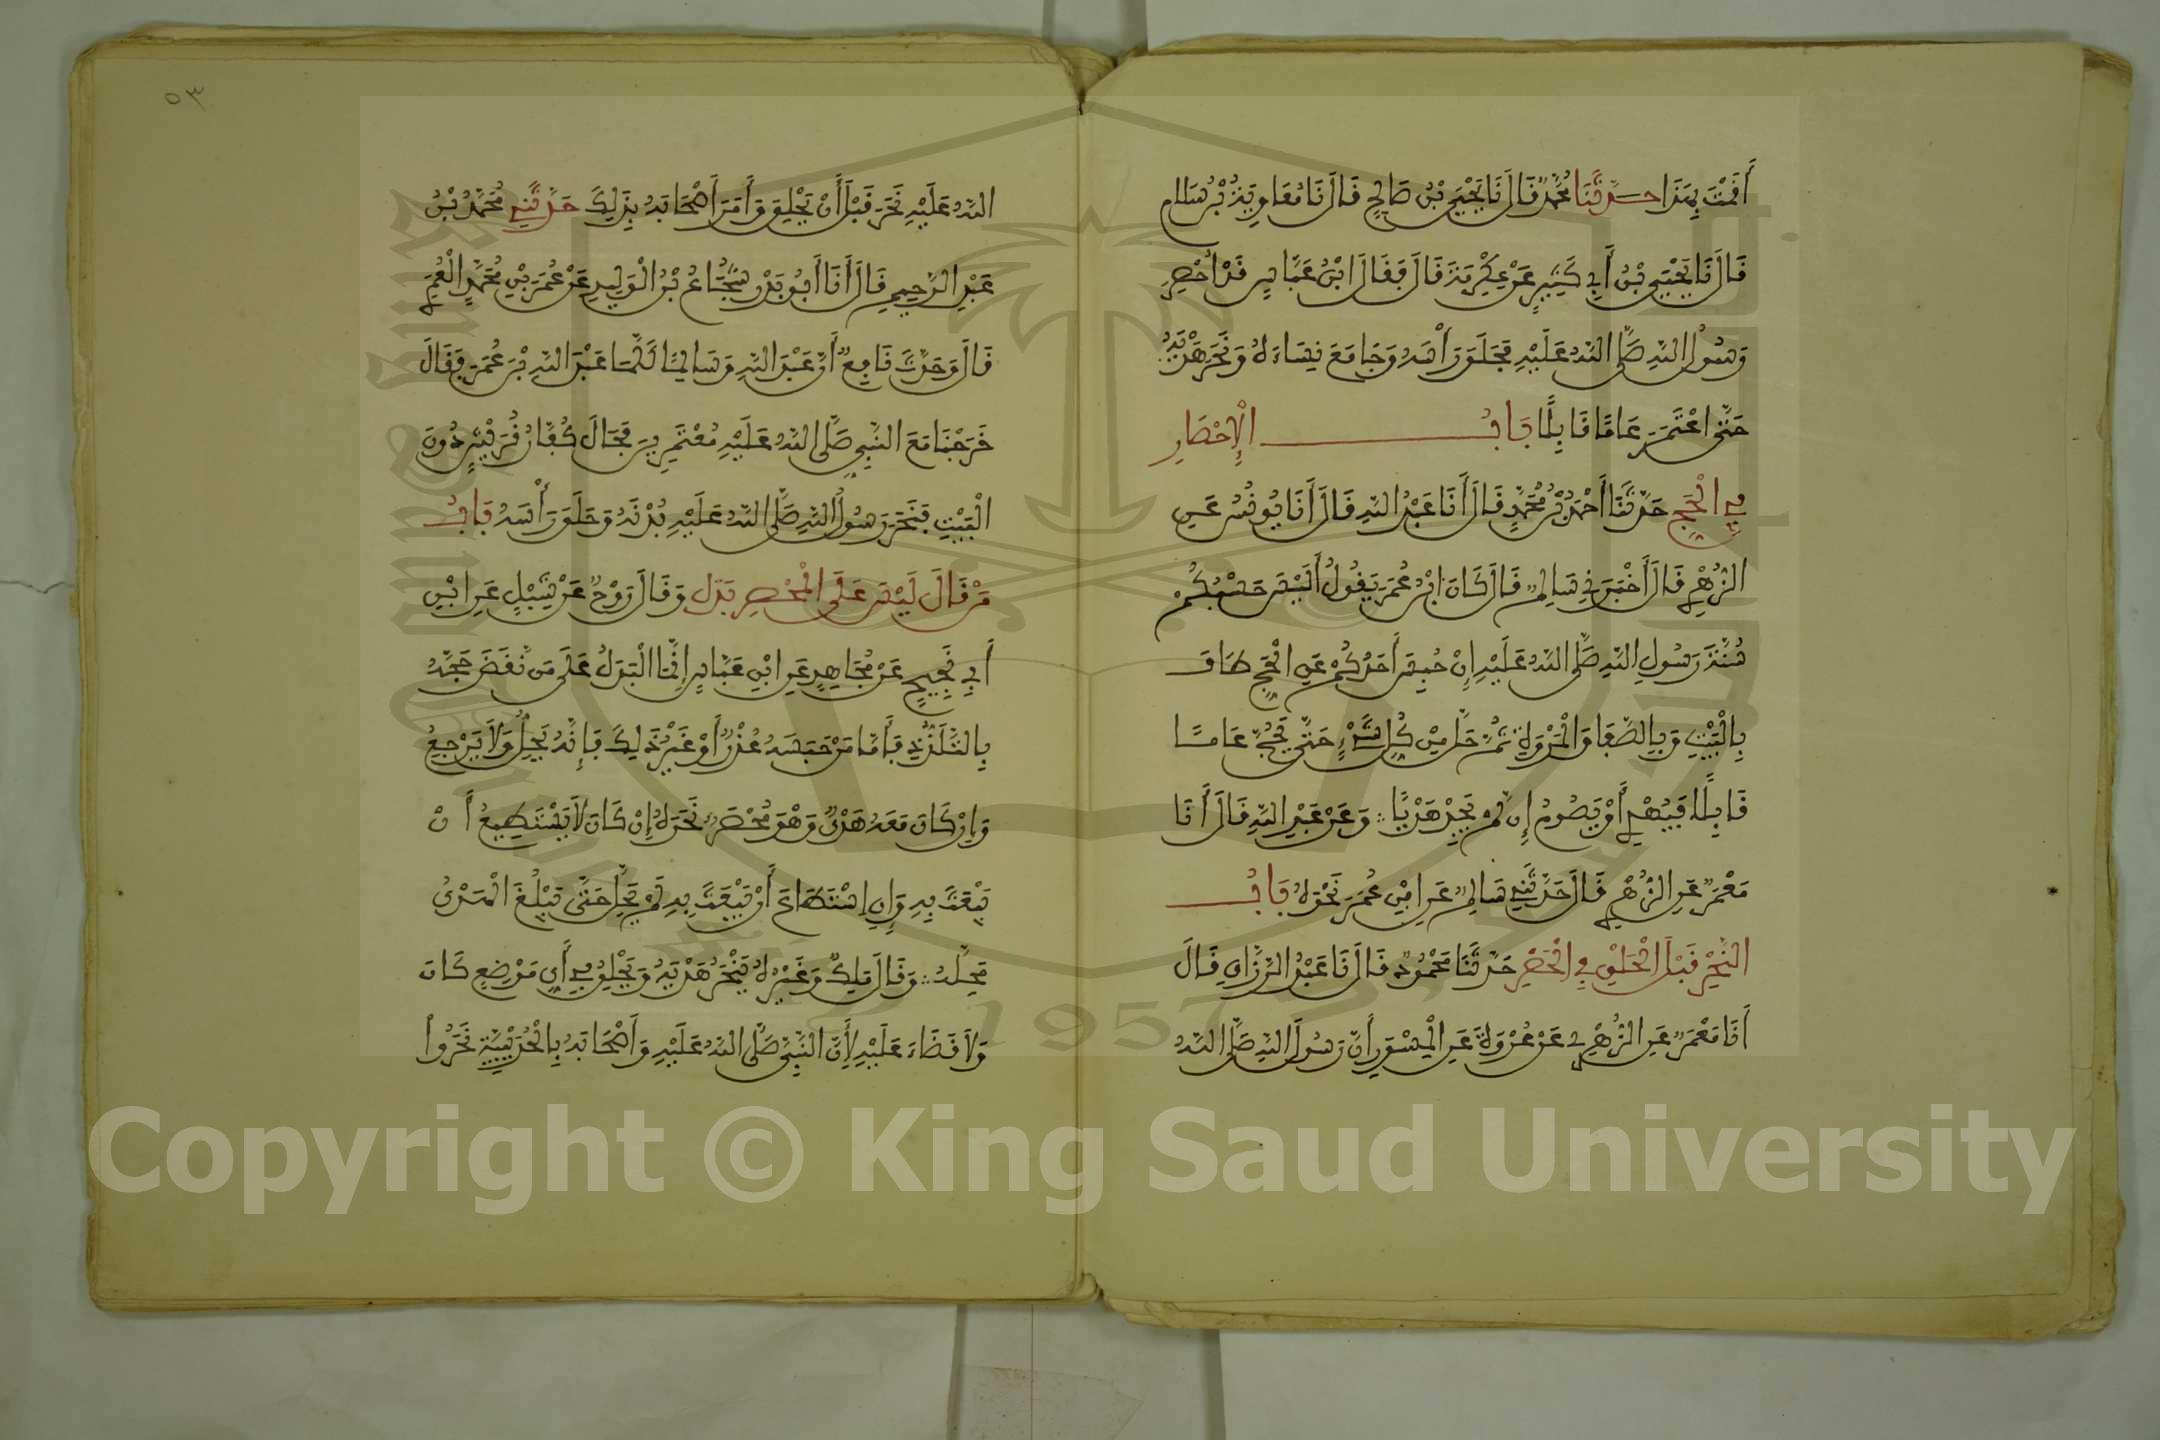 أَقَمْتَ بِهَذَا حَدَّثَنَا مُحَمَّدٌ قَالَ نَا يَحْيَى بْنُ صَالِحٍ قَالَ نَا مُعَاوِيَةُ بْنُ سَلَّامٍ
قَالَ نَا يَحْيَى بْنُ أَبِي كَثِيرٍ عَنْ عِكْرِمَةَ قَالَ فَقَالَ ابْنُ عَبَّاسٍ قَدْ أُحْصِرَ
رَسُولُ اللَّهِ صَلَّى اللَّهُ عَلَيْهِ فَحَلَقَ رَأْسَهُ وَجَامَعَ نِسَاءَهُ وَنَحَرَ هَدْيَهُ
حَتَّى اعْتَمَرَ عَامًا قَابِلًا بَابُ الْإِحْصَارِ
فِي الْحَجِّ حَدَّثَنَا أَحْمَدُ بْنُ مُحَمَّدٍ قَالَ أَنَا عَبْدُ اللَّهِ قَالَ أَنَا يُونُسُ عَنِ
الزُّهْرِيِّ قَالَ أَخْبَرَنِي سَالِمٌ قَالَ كَانَ ابْنُ عُمَرَ يَقُولُ أَلَيْسَ حَسْبُكُمْ
سُنَّةَ رَسُولِ اللَّهِ صَلَّى اللَّهُ عَلَيْهِ إِنْ حُبِسَ أَحَدُكُمْ عَنِ الْحَجِّ طَافَ
بِالْبَيْتِ وَبِالصَّفَا وَالْمَرْوَةِ ثُمَّ حَلَّ مِنْ كُلِّ شَيْءٍ حَتَّى يَحُجَّ عَامًا
قَابِلًا فَيُهْدِي أَوْ يَصُومُ إِنْ لَمْ يَجِدْ هَدْيًا وَعَنْ عَبْدِ اللَّهِ قَالَ أَنَا
مَعْمَرٌ عَنِ الزُّهْرِيِّ قَالَ حَدَّثَنِي سَالِمٌ عَنِ ابْنِ عُمَرَ نَحْوَهُ بَابُ
النَّحْرِ قَبْلَ الْحَلْقِ فِي الْحَصْرِ حَدَّثَنَا مَحْمُودٌ قَالَ نَا عَبْدُ الرَّزَّاقِ قَالَ
أَنَا مَعْمَرٌ عَنِ الزُّهْرِيِّ عَنْ عُرْوَةَ عَنِ الْمِسْوَرِ أَنَّ رَسُولَ اللَّهِ صَلَّى اللَّهُ
٥٣
اللَّهُ عَلَيْهِ نَحَرَ قَبْلَ أَنْ يَحْلِقَ وَأَمَرَ أَصْحَابَهُ بِذَلِكَ حَدَّثَنِي مُحَمَّدُ بْنُ
عَبْدِ الرَّحِيمِ قَالَ أَنَا أَبُو بَدْرٍ شُجَاعُ بْنُ الْوَلِيدِ عَنْ عُمَرَ بْنِ مُحَمَّدٍ الْعُمَرِي
قَالَ وَحَدَّثَ نَافِعٌ أَنَّ عَبْدَ اللَّهِ وَسَالِمًا كَلَّمَا عَبْدَ اللَّهِ بْنَ عُمَرَ فَقَالَ
خَرَجْنَا مَعَ النَّبِيِّ صَلَّى اللَّهُ عَلَيْهِ مُعْتَمِرِينَ فَحَالَ كُفَّارُ قُرَيْشٍ دُونَ
الْبَيْتِ فَنَحَرَ رَسُولُ اللَّهِ صَلَّى اللَّهُ عَلَيْهِ بُدْنَهُ وَحَلَقَ رَأْسَهُ بَابُ
مَنْ قَالَ لَيْسَ عَلَى الْمُحْصَرِ بَدَلٌ وَقَالَ رَوْحٌ عَنْ شِبْلٍ عَنِ ابْنِ
أَبِي نَجِيحٍ عَنْ مُجَاهِدٍ عَنِ ابْنِ عَبَّاسٍ إِنَّمَا الْبَدَلُ عَلَى مَنْ نَقَضَ حَجَّهُ
بِالتَّلَذُّذِ فَأَمَّا مَنْ حَبَسَهُ عُذْرٌ أَوْ غَيْرُ ذَلِكَ فَإِنَّهُ يَحِلُّ وَلَا يَرْجِعُ
وَإِنْ كَانَ مَعَهُ هَدْيٌ وَهْوَ مُحْصَرٌ نَحَرَهُ إِنْ كَانَ لَا يَسْتَطِيعُ أَنْ
يَبْعَثَ بِهِ وَإِنِ اسْتَطَاعَ أَنْ يَبْعَثَ بِهِ لَمْ يَحِلَّ حَتَّى يَبْلُغَ الْهَدْيُ
مَحِلَّهُ وَقَالَ مَلِكٌ وَغَيْرُهُ يَنْحَرُ هَدْيَهُ وَيَحْلِقُ فِي أَيِّ مَوْضِعٍ كَانَ
وَلَا قَضَاءَ عَلَيْهِ لِأَنَّ النَّبِيَّ صَلَّى اللَّهُ عَلَيْهِ وَأَصْحَابَهُ بِالْحُدَيْبِيَةِ نَحَرُوا
1957
Copyright © King Saud University